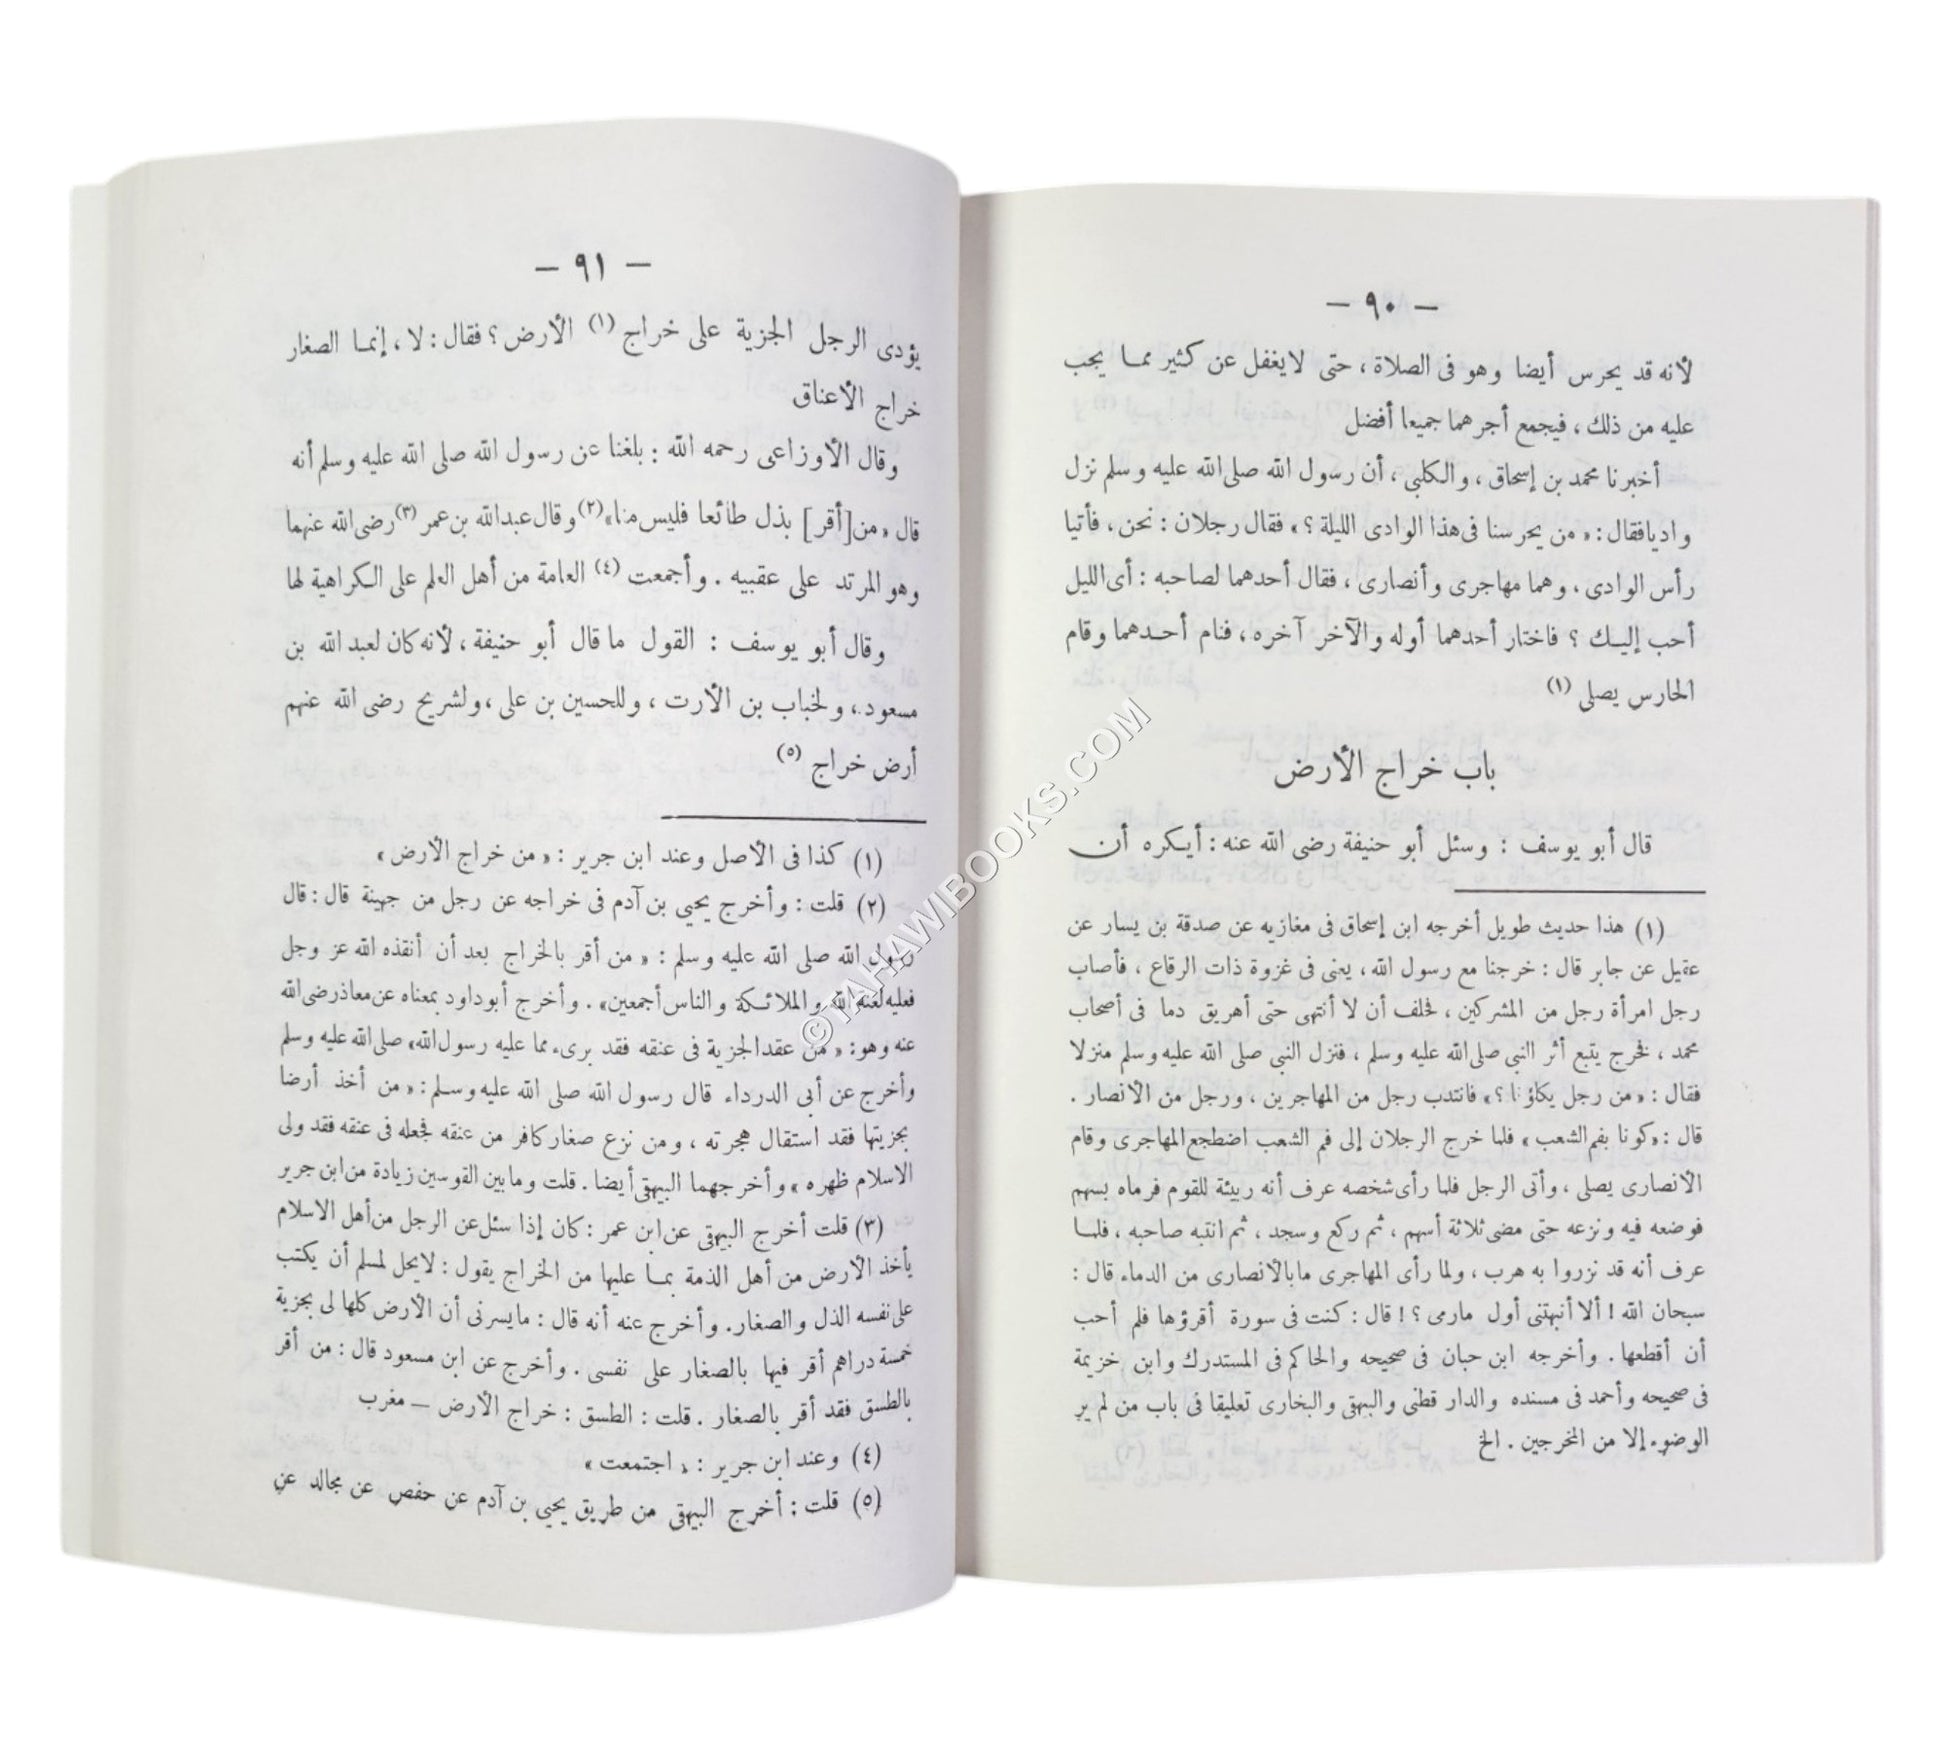 — ٩٠ —
لأنه قد يحرس أيضا وهو فى الصلاة ، حتى لايغفل عن كثير مما يجب
عليه من ذلك ، فيجمع أجرهما جميعا أفضل
أخبرنا محمد بن إسحاق ، والكلبى ، أن رسول الله صلى الله عليه وسلم نزل
واديا فقال : « من يحرسنا فى هذا الوادى الليلة ؟ » فقال رجلان : نحن ، فأتيا
رأس الوادى ، وهما مهاجرى وأنصارى ، فقال أحدهما لصاحبه : أى الليل
أحب إليك ؟ فاختار أحدهما أوله والآخر آخره ، فنام أحدهما وقام
الحارس يصلى (١)
باب خراج الأرض
قال أبو يوسف : وسئل أبو حنيفة رضى الله عنه : أيكره أن
(١) هذا حديث طويل أخرجه ابن إسحاق فى مغازيه عن صدقة بن يسار عن
عقيل عن جابر قال : خرجنا مع رسول الله ، يعنى فى غزوة ذات الرقاع ، فأصاب
رجل امرأة رجل من المشركين ، فحلف أن لا أنتهى حتى أهريق دما فى أصحاب
محمد ، فخرج يتبع أثر النبى صلى الله عليه وسلم ، فنزل النبى صلى الله عليه وسلم منزلا
فقال : « من رجل يكلؤنا ؟ » فانتدب رجل من المهاجرين ، ورجل من الأنصار .
قال : «كونا بفم الشعب » فلما خرج الرجلان إلى فم الشعب اضطجع المهاجرى وقام
الأنصارى يصلى ، وأتى الرجل فلما رأى شخصه عرف أنه ربيئة للقوم فرماه بسهم
فوضعه فيه ونزعه حتى مضى ثلاثة أسهم ، ثم ركع وسجد ، ثم انتبه صاحبه ، فلما
عرف أنه قد نزروا به هرب ، ولما رأى المهاجرى ما بالأنصارى من الدماء قال :
سبحان الله ! ألا أنبهتنى أول مارمى ؟ ! قال : كنت فى سورة أقرؤها فلم أحب
أن أقطعها . وأخرجه ابن حبان فى صحيحه والحاكم فى المستدرك وابن خزيمة
فى صحيحه وأحمد فى مسنده والدار قطنى والبيهقى والبخارى تعليقا فى باب من لم ير
الوضوء إلا من المخرجين . الخ
— ٩١ —
يؤدى الرجل الجزية على خراج (١) الأرض ؟ فقال : لا ، إنما الصغار
خراج الأعناق
وقال الأوزاعى رحمه الله : بلغنا عن رسول الله صلى الله عليه وسلم أنه
قال « من [أقر] بذل طائعا فليس منا» (٢) وقال عبدالله بن عمر (٣) رضى الله عنهما
وهو المرتد على عقبيه . وأجمعت (٤) العامة من أهل العلم على الكراهية لها
وقال أبو يوسف : القول ما قال أبو حنيفة ، لأنه كان لعبد الله بن
مسعود ، ولخباب بن الأرت ، وللحسين بن على ، ولشريح رضى الله عنهم
أرض خراج (٥)
(١) كذا فى الأصل وعند ابن جرير : « من خراج الأرض »
(٢) قلت : وأخرج يحيى بن آدم فى خراجه عن رجل من جهينة قال : قال
رسول الله صلى الله عليه وسلم : « من أقر بالخراج بعد أن أنقذه الله عز وجل
فعليه لعنة الله والملائكة والناس أجمعين» . وأخرج أبو داود بمعناه عن معاذ رضى الله
عنه وهو: « من عقد الجزية فى عنقه فقد برىء مما عليه رسول الله» صلى الله عليه وسلم
وأخرج عن أبى الدرداء قال رسول الله صلى الله عليه وسلم : « من أخذ أرضا
بجزيتها فقد استقال هجرته ، ومن نزع صغار كافر من عنقه فجعله فى عنقه فقد ولى
الاسلام ظهره » وأخرجهما البيهقى أيضا . قلت وما بين القوسين زيادة من ابن جرير
(٣) قلت أخرج البيهقى عن ابن عمر : كان إذا سئل عن الرجل من أهل الاسلام
يأخذ الأرض من أهل الذمة بما عليها من الخراج يقول : لا يحل لمسلم أن يكتب
على نفسه الذل والصغار. وأخرج عنه أنه قال : ما يسرنى أن الأرض كلها لى بجزية
خمسة دراهم أقر فيها بالصغار على نفسى . وأخرج عن ابن مسعود قال : من أقر
بالطسق فقد أقر بالصغار . قلت : الطسق : خراج الأرض — مغرب
(٤) وعند ابن جرير : « اجتمعت »
(٥) قلت : أخرج البيهقى من طريق يحيى بن آدم عن حفص عن مجالد عن
©TAHAWIBOOKS.COM